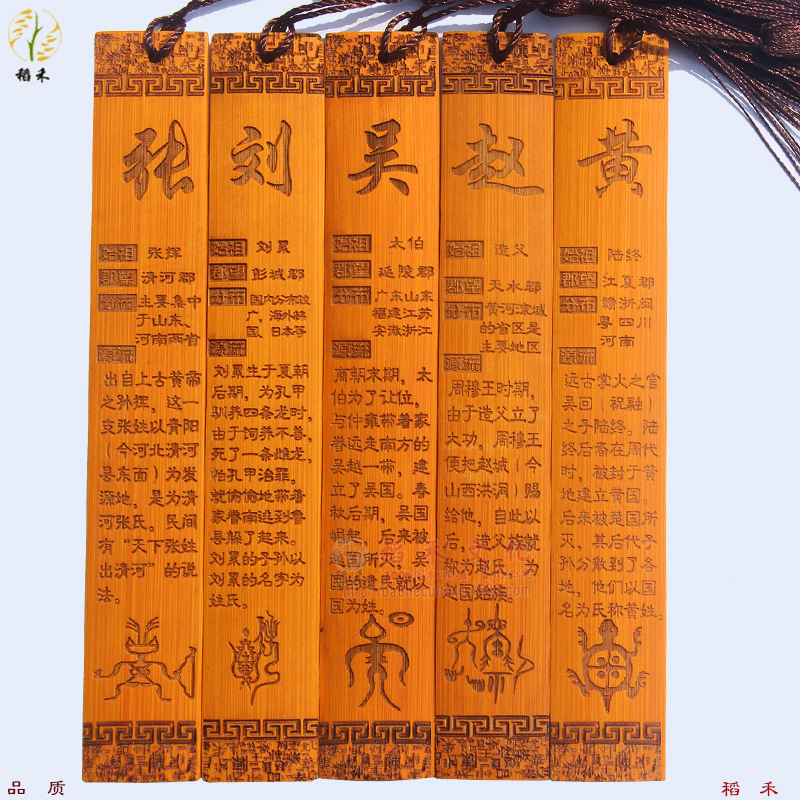 稻禾
张
始祖 张挥
郡望 清河郡
分布 主要集中
于山东、
河南两省
源流
出自上古黄帝
之孙挥，这一
支张姓以青阳
（今河北清河
县东面）为发
源地，是为清
河张氏。民间
有“天下张姓
出清河”的说
法。
刘
始祖 刘累
郡望 彭城郡
分布 国内分布较
广，海外韩
国、日本等
源流
刘累生于夏朝
后期，为孔甲
驯养四条龙时，
由于饲养不善，
死了一条雌龙，
怕孔甲治罪，
就偷偷地带着
家眷南逃到鲁
县躲了起来。
刘累的子孙以
刘累的名字为
姓氏。
吴
始祖 太伯
郡望 延陵郡
分布 广东山东
福建江苏
安徽浙江
源流
商朝末期，太
伯为了让位，
与仲雍带着家
眷远走南方的
吴越一带，建
立了吴国。春
秋后期，吴国
崛起，后来被
越国所灭，吴
国的遗民就以
国为姓。
赵
始祖 造父
郡望 天水郡
分布 黄河流域
的省区是
主要地区
源流
周穆王时期，
由于造父立了
大功，周穆王
便把赵城（今
山西洪洞）赐
给他，自此以
后，造父族就
称为赵氏，为
赵国始族。
黄
始祖 陆终
郡望 江夏郡
分布 赣浙闽
粤四川
河南
源流
远古掌火之官
吴回（祝融）
之子陆终，陆
终后裔在周代
时，被封于黄
地建立黄国。
后来被楚国所
灭，其后代子
孙分散到了各
地，他们以国
名为氏称黄姓。
品质
稻禾